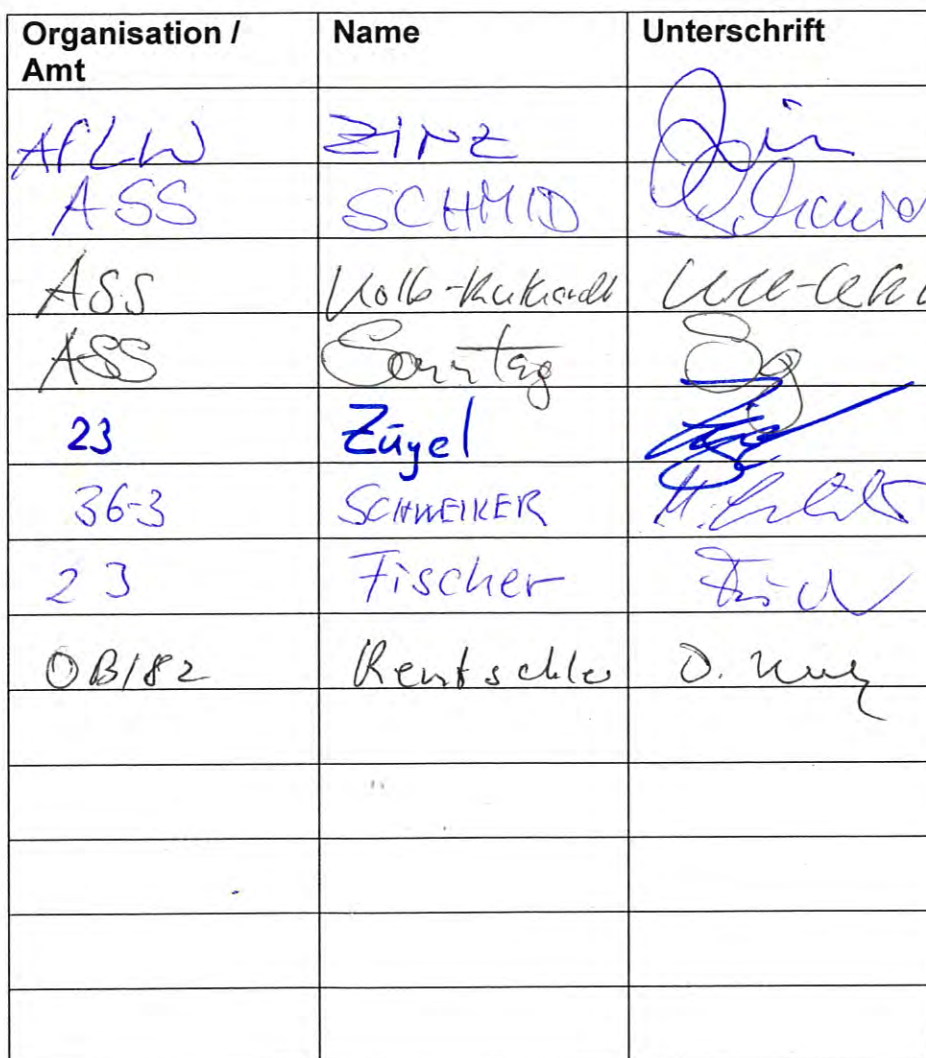 Organisation / Name Unterschrift
Amt
AfLW ZINZ
ASS SCHMID Schmid
ASS
ASS Sonntag Sg
23 Zügel
36-3 SCHWEIKER
23 Fischer
OB/82 Rentschler